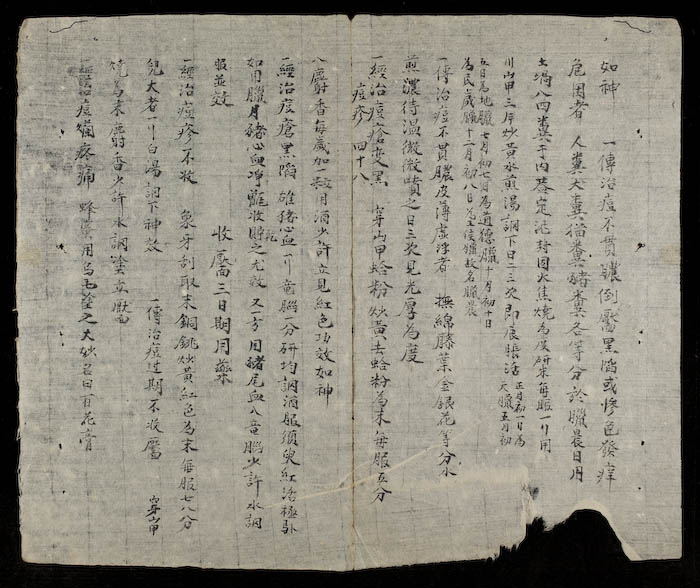 如神　一傳治痘不貫膿倒靨黑陷或慘色發痒
危困者　人糞犬糞猫糞豬糞各等分於臘晨日用
土堝八四糞于内蓋定泥封固火焦燒為度研末每服一刀用
川山甲三片炒黃水煎湯調下日二三次即辰脹活
正月初一日為天臘五月初
五日為地臘七月初七日為道德臘十月初十日
為民歲臘十二月初八日為王侯臘故名臘晨
一傳治痘不貫膿皮薄虛浮者　撫綿藤葉金銀花等分水
煎濃待温微微噴之日三次見光厚為度
一經治痘瘡变黑　穿山甲蛤粉炒黃去蛤粉為末每服五分
痘疹　四十八
八麝香每歲加一釐用酒少許立見紅色功效如神
一經治痘瘡黑陷　雄猪心血一刀竜腦一分研均調酒服須臾紅活極卧
如用臘月猪心血净瓶收貯之乾尤效　又一方用猪尾血八竜腦少許水調
服並效
收靨三日期用藥
一經治痘疹不收　象牙刮取末銅銚炒黃紅色為末每服七八分
兒大者一刀白湯調下神效　一傳治痘过期不收靨　穿山甲
燒為末麝香少許水調塗立靨
一經治痘爛疼痛　蜂蜜用烏毛塗之大妙名曰百花膏